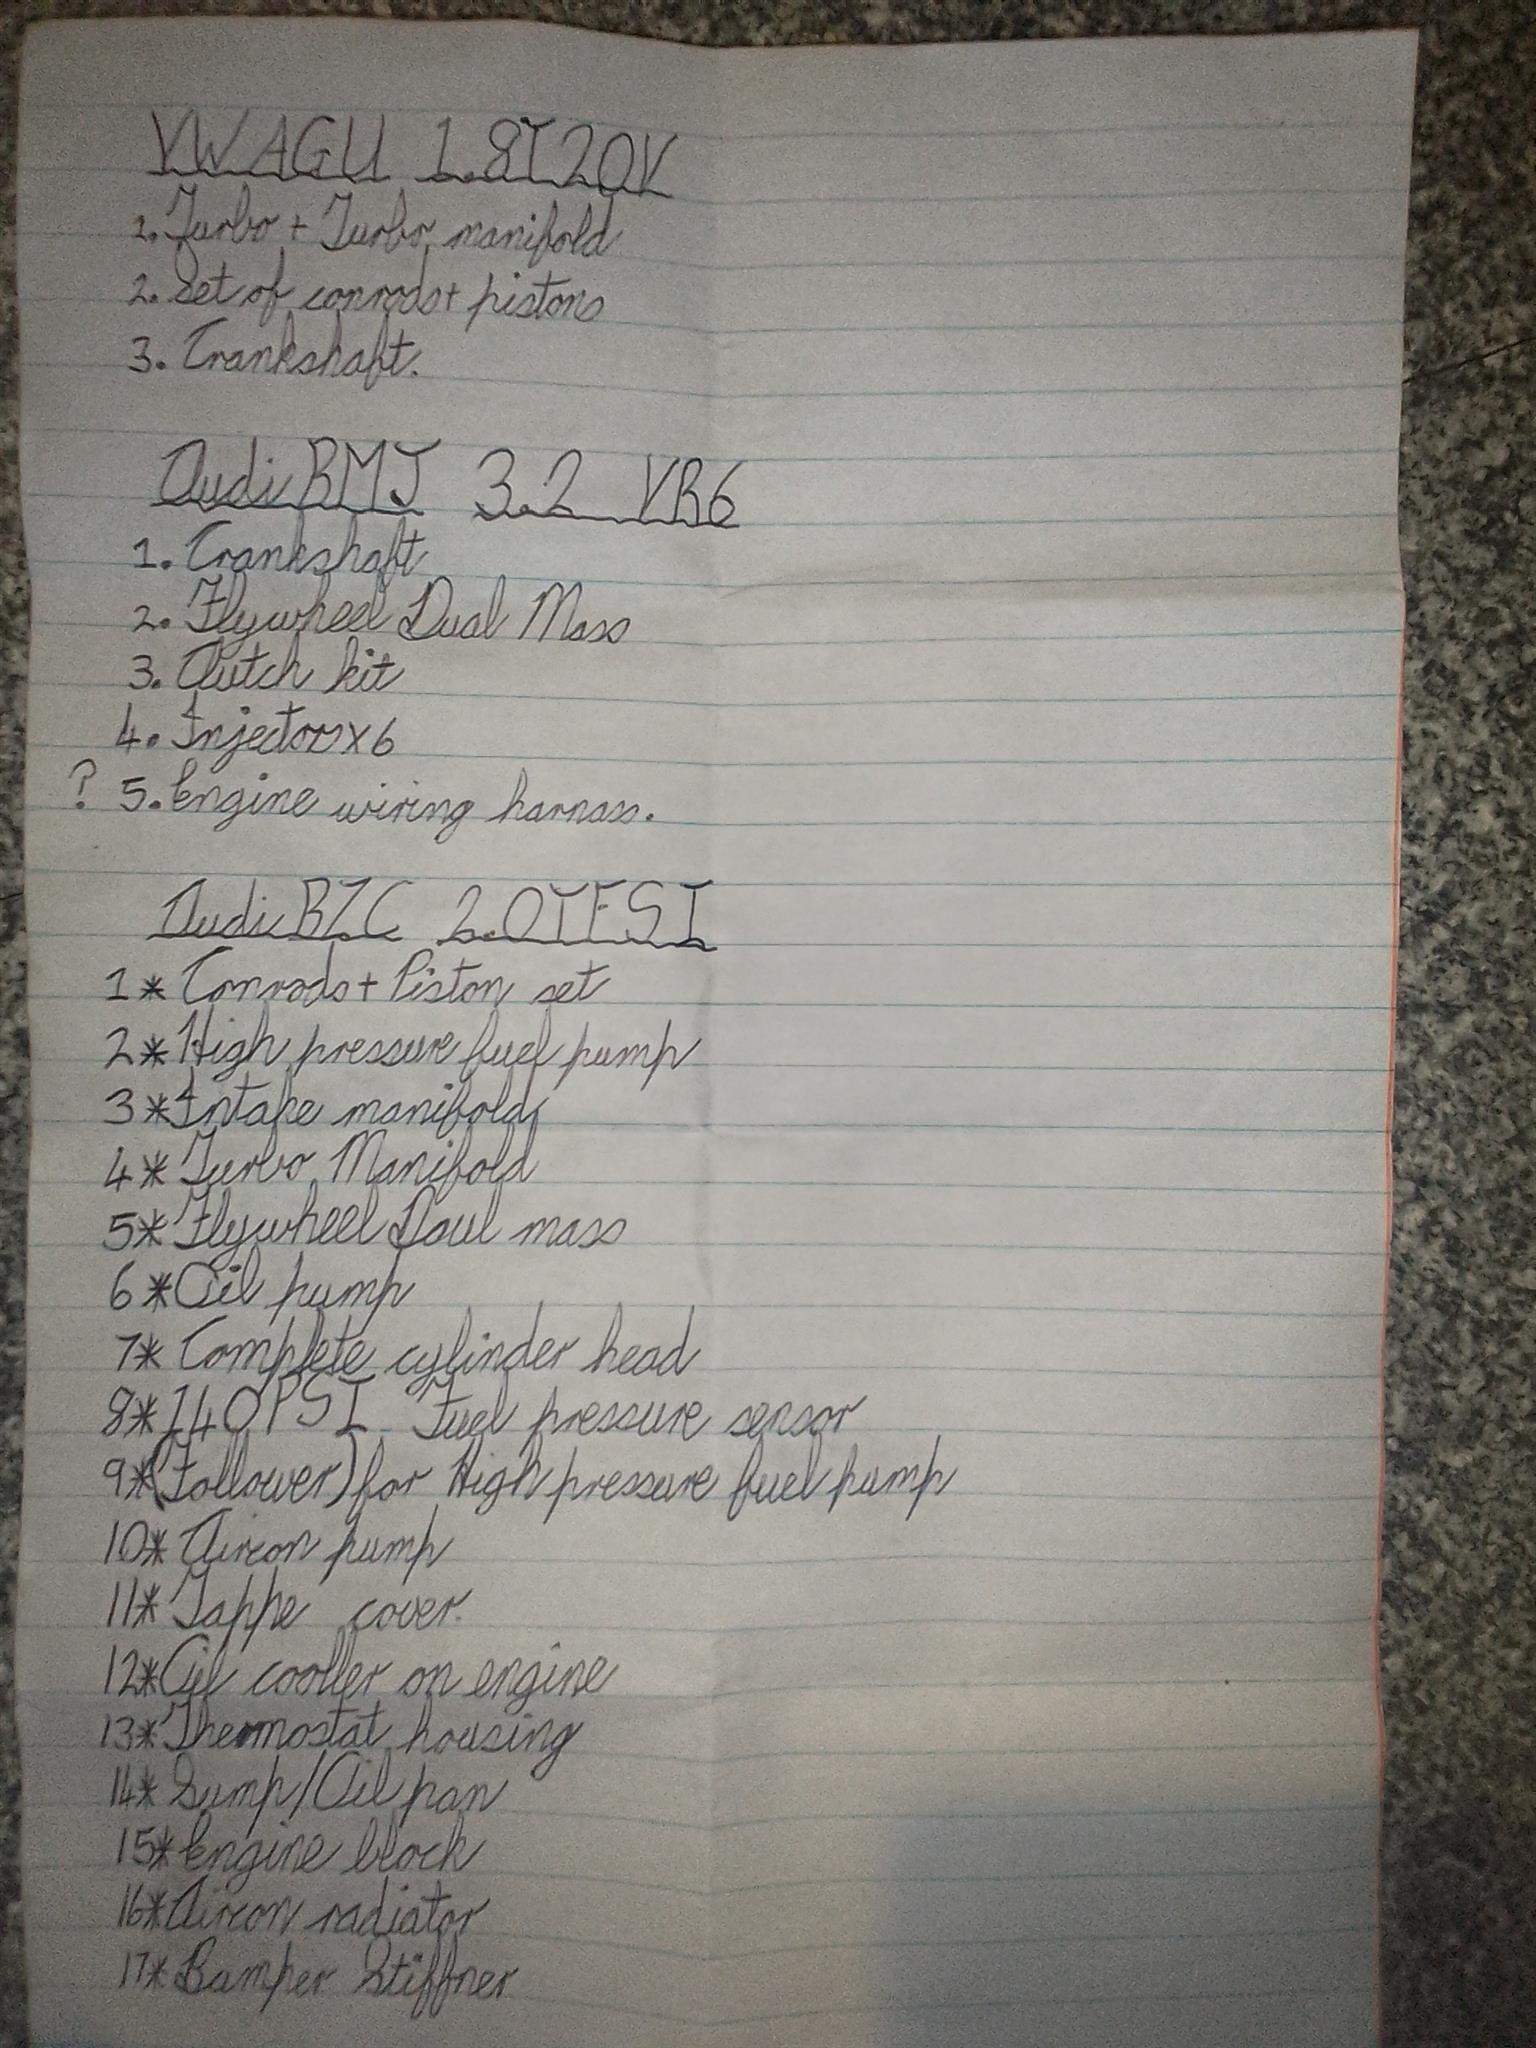 VW AGU 1.8T 20V
1. Turbo + Turbo manifold
2. Set of conrods + pistons
3. Crankshaft.
Audi BMJ 3.2 VR6
1. Crankshaft
2. Flywheel Dual Mass
3. Clutch kit
4. Injectors x 6
? 5. Engine wiring harnass.
Audi BZC 2.0TFSI
1* Conrods + Piston set
2* High pressure fuel pump
3* Intake manifold
4* Turbo Manifold
5* Flywheel Daul mass
6* Oil pump
7* Complete cylinder head
8* 140PSI Fuel pressure sensor
9* (Follower) for High pressure fuel pump
10* Aircon pump
11* Tappe cover.
12* Oil cooller on engine
13* Thermostat housing
14* Sump/Oil pan
15* Engine block
16* Aircon radiator
17* Bamper Stiffner